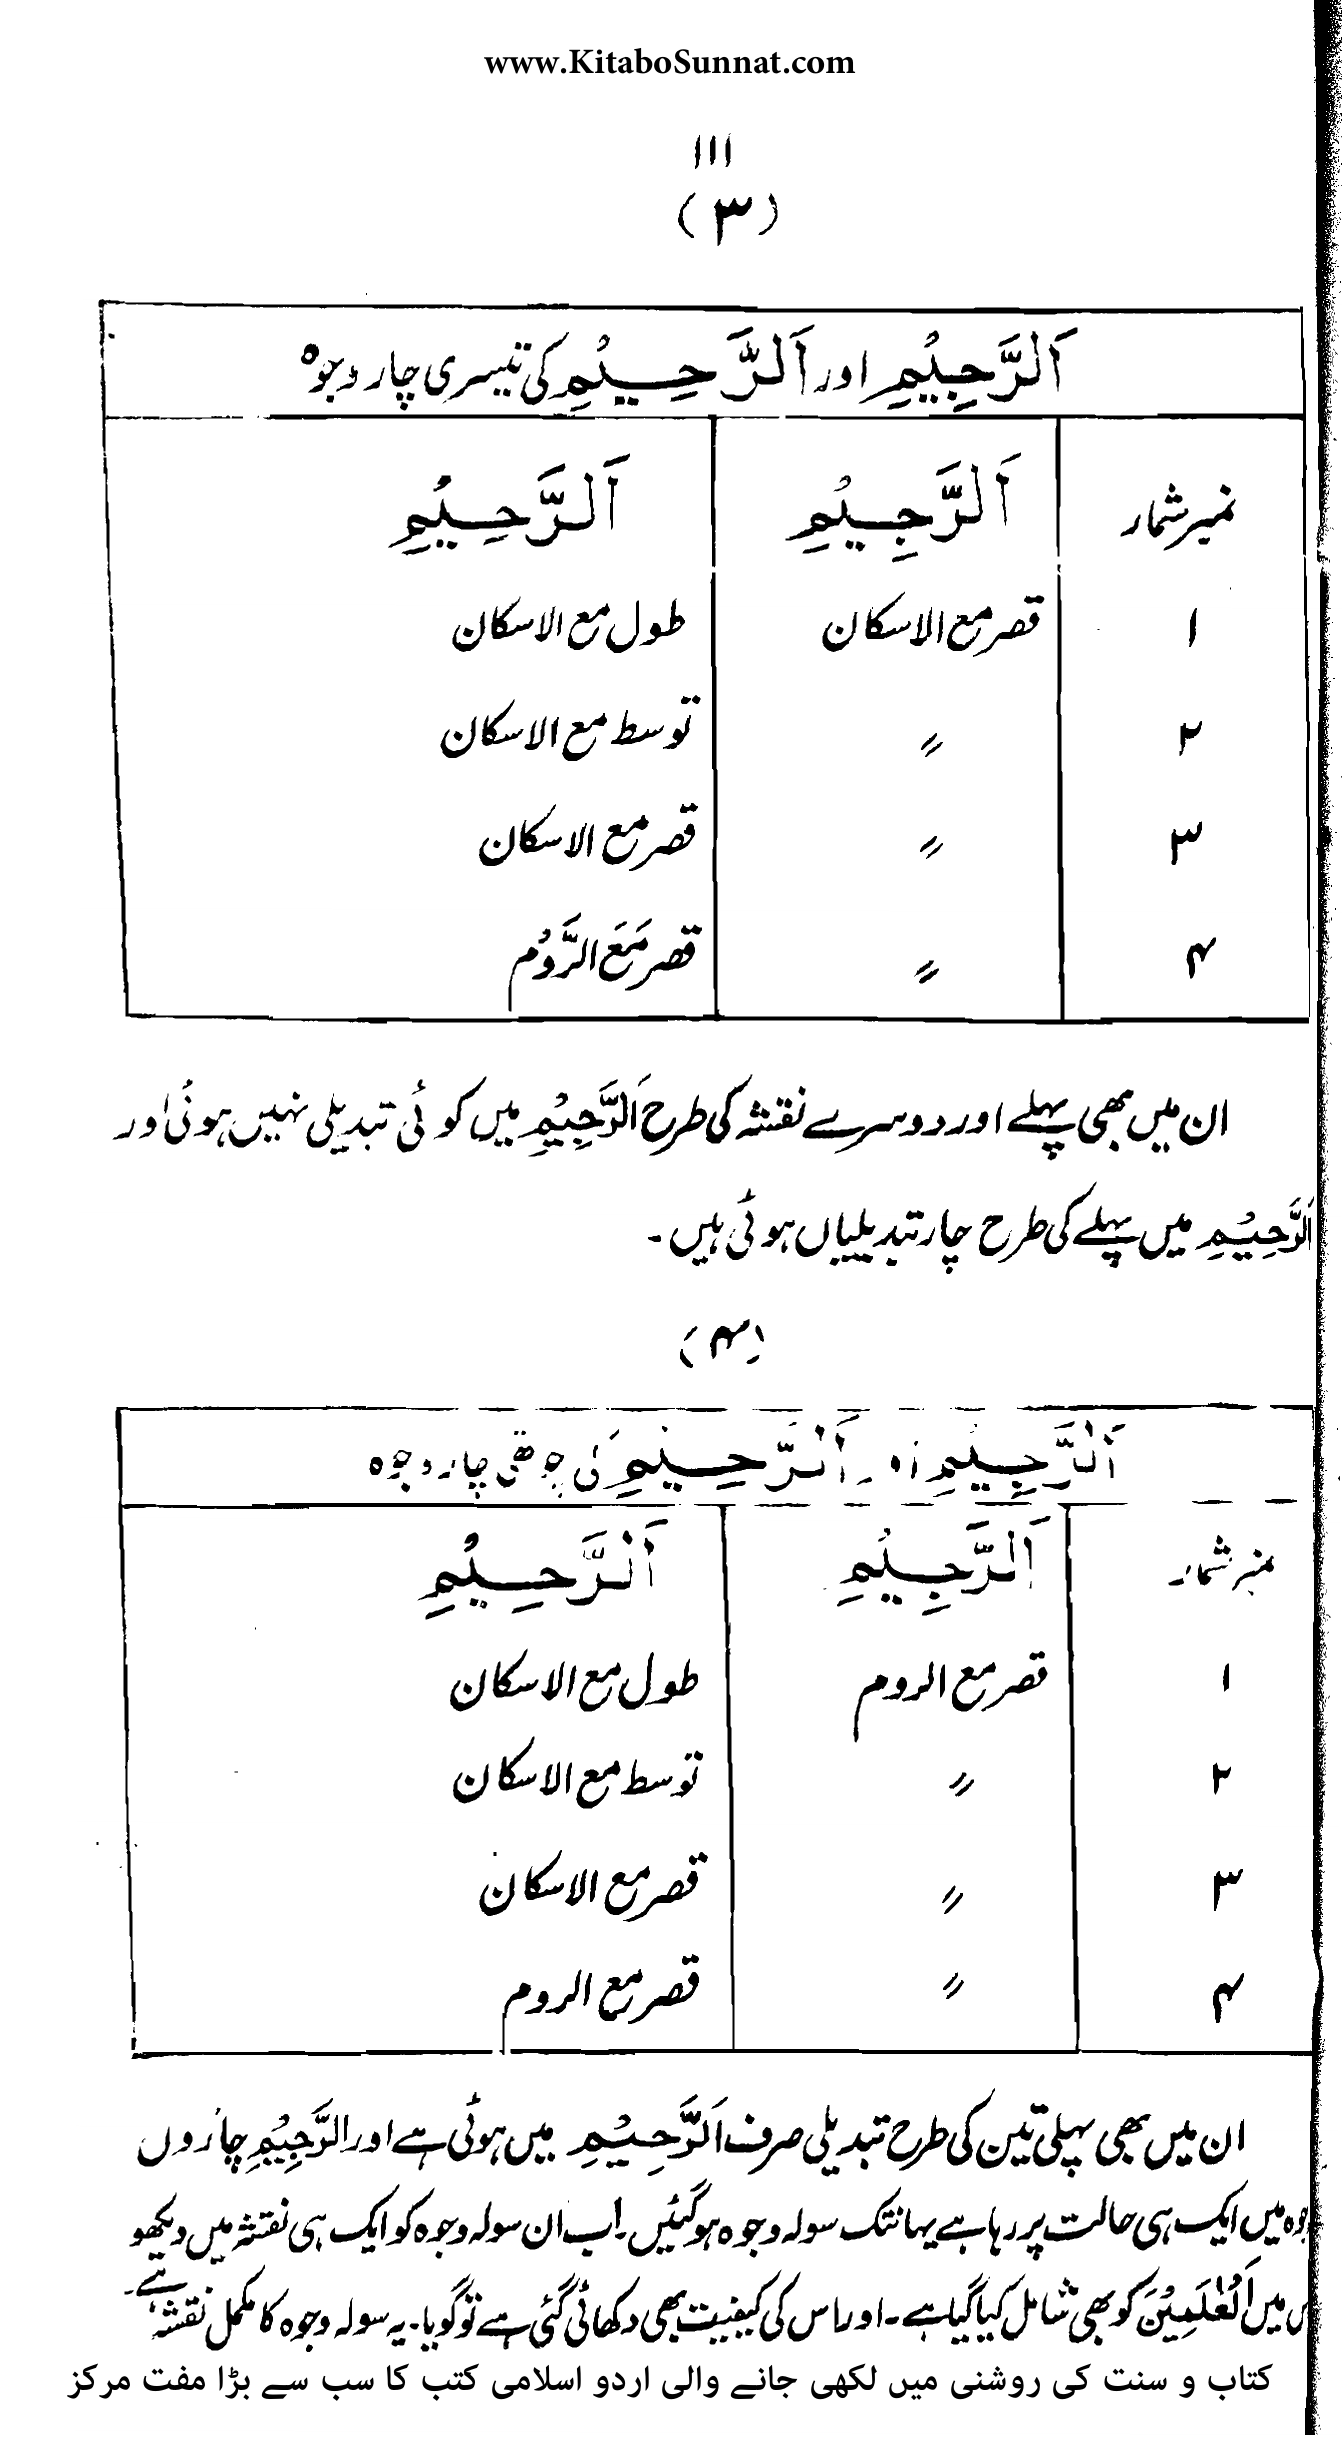 www.KitaboSunnat.com
۱۱۱
(۳)
اَلرَّجِيْمِ اور اَلرَّحِيْمِ کی تیسری چار وجوہ
نمبر شمار اَلرَّجِيْمِ اَلرَّحِيْمِ
۱ قصر مع الاسکان طول مع الاسکان
۲ 〃 توسط مع الاسکان
۳ 〃 قصر مع الاسکان
۴ 〃 قصر مَعَ الرَّوْم
ان میں بھی پہلے اور دوسرے نقشہ کی طرح اَلرَّجِيْمِ میں کوئی تبدیلی نہیں ہوئی اور
اَلرَّحِيْمِ میں پہلے کی طرح چار تبدیلیاں ہوئی ہیں۔
(۴)
اَلرَّجِيْمِ اور اَلرَّحِيْمِ کی چوتھی چار وجوہ
نمبر شمار اَلرَّجِيْمِ اَلرَّحِيْمِ
۱ قصر مع الروم طول مع الاسکان
۲ 〃 توسط مع الاسکان
۳ 〃 قصر مع الاسکان
۴ 〃 قصر مع الروم
ان میں بھی پہلی تین کی طرح تبدیلی صرف اَلرَّحِيْمِ میں ہوئی ہے اور الرَّجِيْمِ چاروں
وجوہ میں ایک ہی حالت پر رہا ہے یہانتک سولہ وجوہ ہوگئیں۔ اب ان سولہ وجوہ کو ایک ہی نقشہ میں دیکھو
میں اَلْعٰلَمِيْنَ کو بھی شامل کیا گیا ہے۔ اور اس کی کیفیت بھی دکھائی گئی ہے تو گویا۔ یہ سولہ وجوہ کا مکمل نقشہ ہے۔
کتاب و سنت کی روشنی میں لکھی جانے والی اردو اسلامی کتب کا سب سے بڑا مفت مرکز